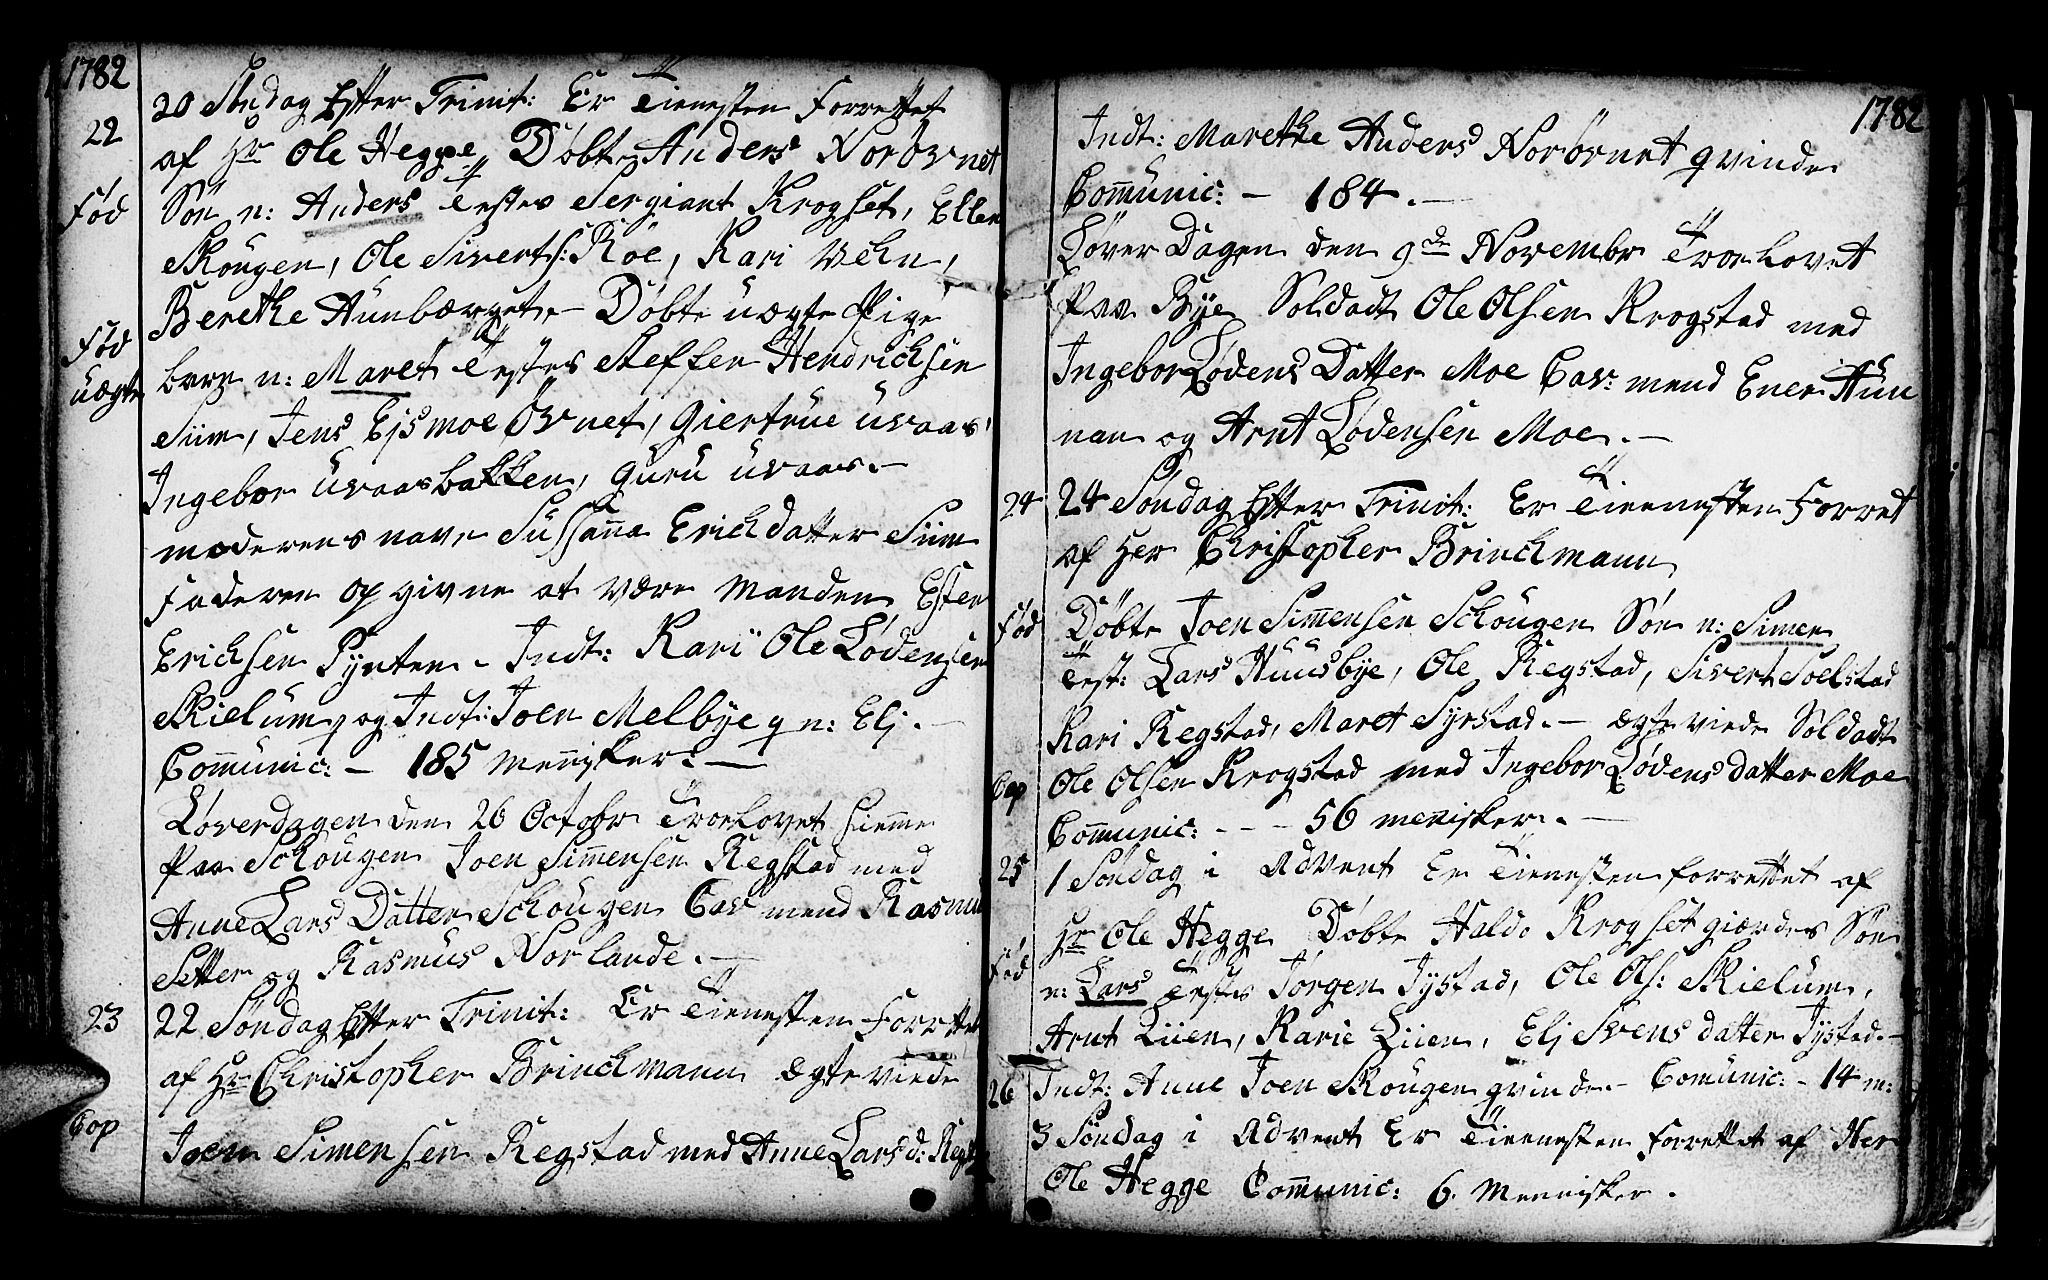 1782
22
20 Søndag Efter Trinit: Er Tienesten Forrettet
af Hr Ole Hegge, Døbt Anders Norøvnet
Fød
Søn n: Anders Testes Sergiant Krogset, Ellen
Skougen, Ole Siverts: Röe, Kari Vehn,
Berethe Aunbærget. - Døbte uægte Pige
Fød
uægte
barn n: Maret Testes Steffen Hendrichsen
Siim, Jens Ejsmoe Øvnet, Giertrue uvaas,
Ingebor uvaasbakken, Guru uvaas. -
moderens navn Sussanna Erichdatter Siim
Faderen op givne at være Manden Esten
Erichsen Pynten - Indt: Kari Ole Lødensen
Skielum q og Indt: Joen Melbye q n: Elj. -
Communic: - 185 Mennisker. -
Løverdagen den 26 Octobr Troelovet hiemme
Paa Schougen Joen Simmensen Regstad med
Anne Lars Datter Schougen Cav mend Rasmus
Setter og Rasmus Norlande. -
23
22 Søndag Efter Trinit: Er Tienesten Forrettet
af Hr Christopher Brinchmann ægte viede
Cop
Joen Simensen Regstad med Anne Lars d: Regst
1782
Indt: Marethe Anders Norørnet qvinde
Communic: - 184. -
Løver Dagen den 9de Novembr Troelovet
Paa Bye Soldadt Ole Olsen Krogstad med
Ingebor Lødens Datter Moe Cav: mend Ener Aun
nan og Arnt Lødensen Moe. -
24
24 Søndag Efter Trinit: Er Tienesten Forret
af Her Christopher Brinchmann
Fød
Døbte Joen Simensen Schougen Søn n: Simen
Test: Lars Huusbye, Ole Regstad, Sivert Soelstad
Kari Regstad, Maret Syrstad. - ægte viede Soldadt
Cop
Ole Olsen Krogstad med Ingebor Lødens datter Moe
Communic: - - - 56 menisker. -
25
1 Søndag i Advent Er Tienesten forrettet af
Hr Ole Hegge Døbte Haldo Krogset giærdes Søn
Fød
n: Lars Testes Jørgen Jystad, Ole Ols: Skielum,
Arnt Liien, Karie Liien, Elj Svens datter Jystad. -
26
Indt: Anne Joen Skougen qvinde. - Comunic: - 14 m:
3 Søndag i Advent Er Tienesten Forrettet af Her
Ole Hegge Communic: 6. Mennisker.